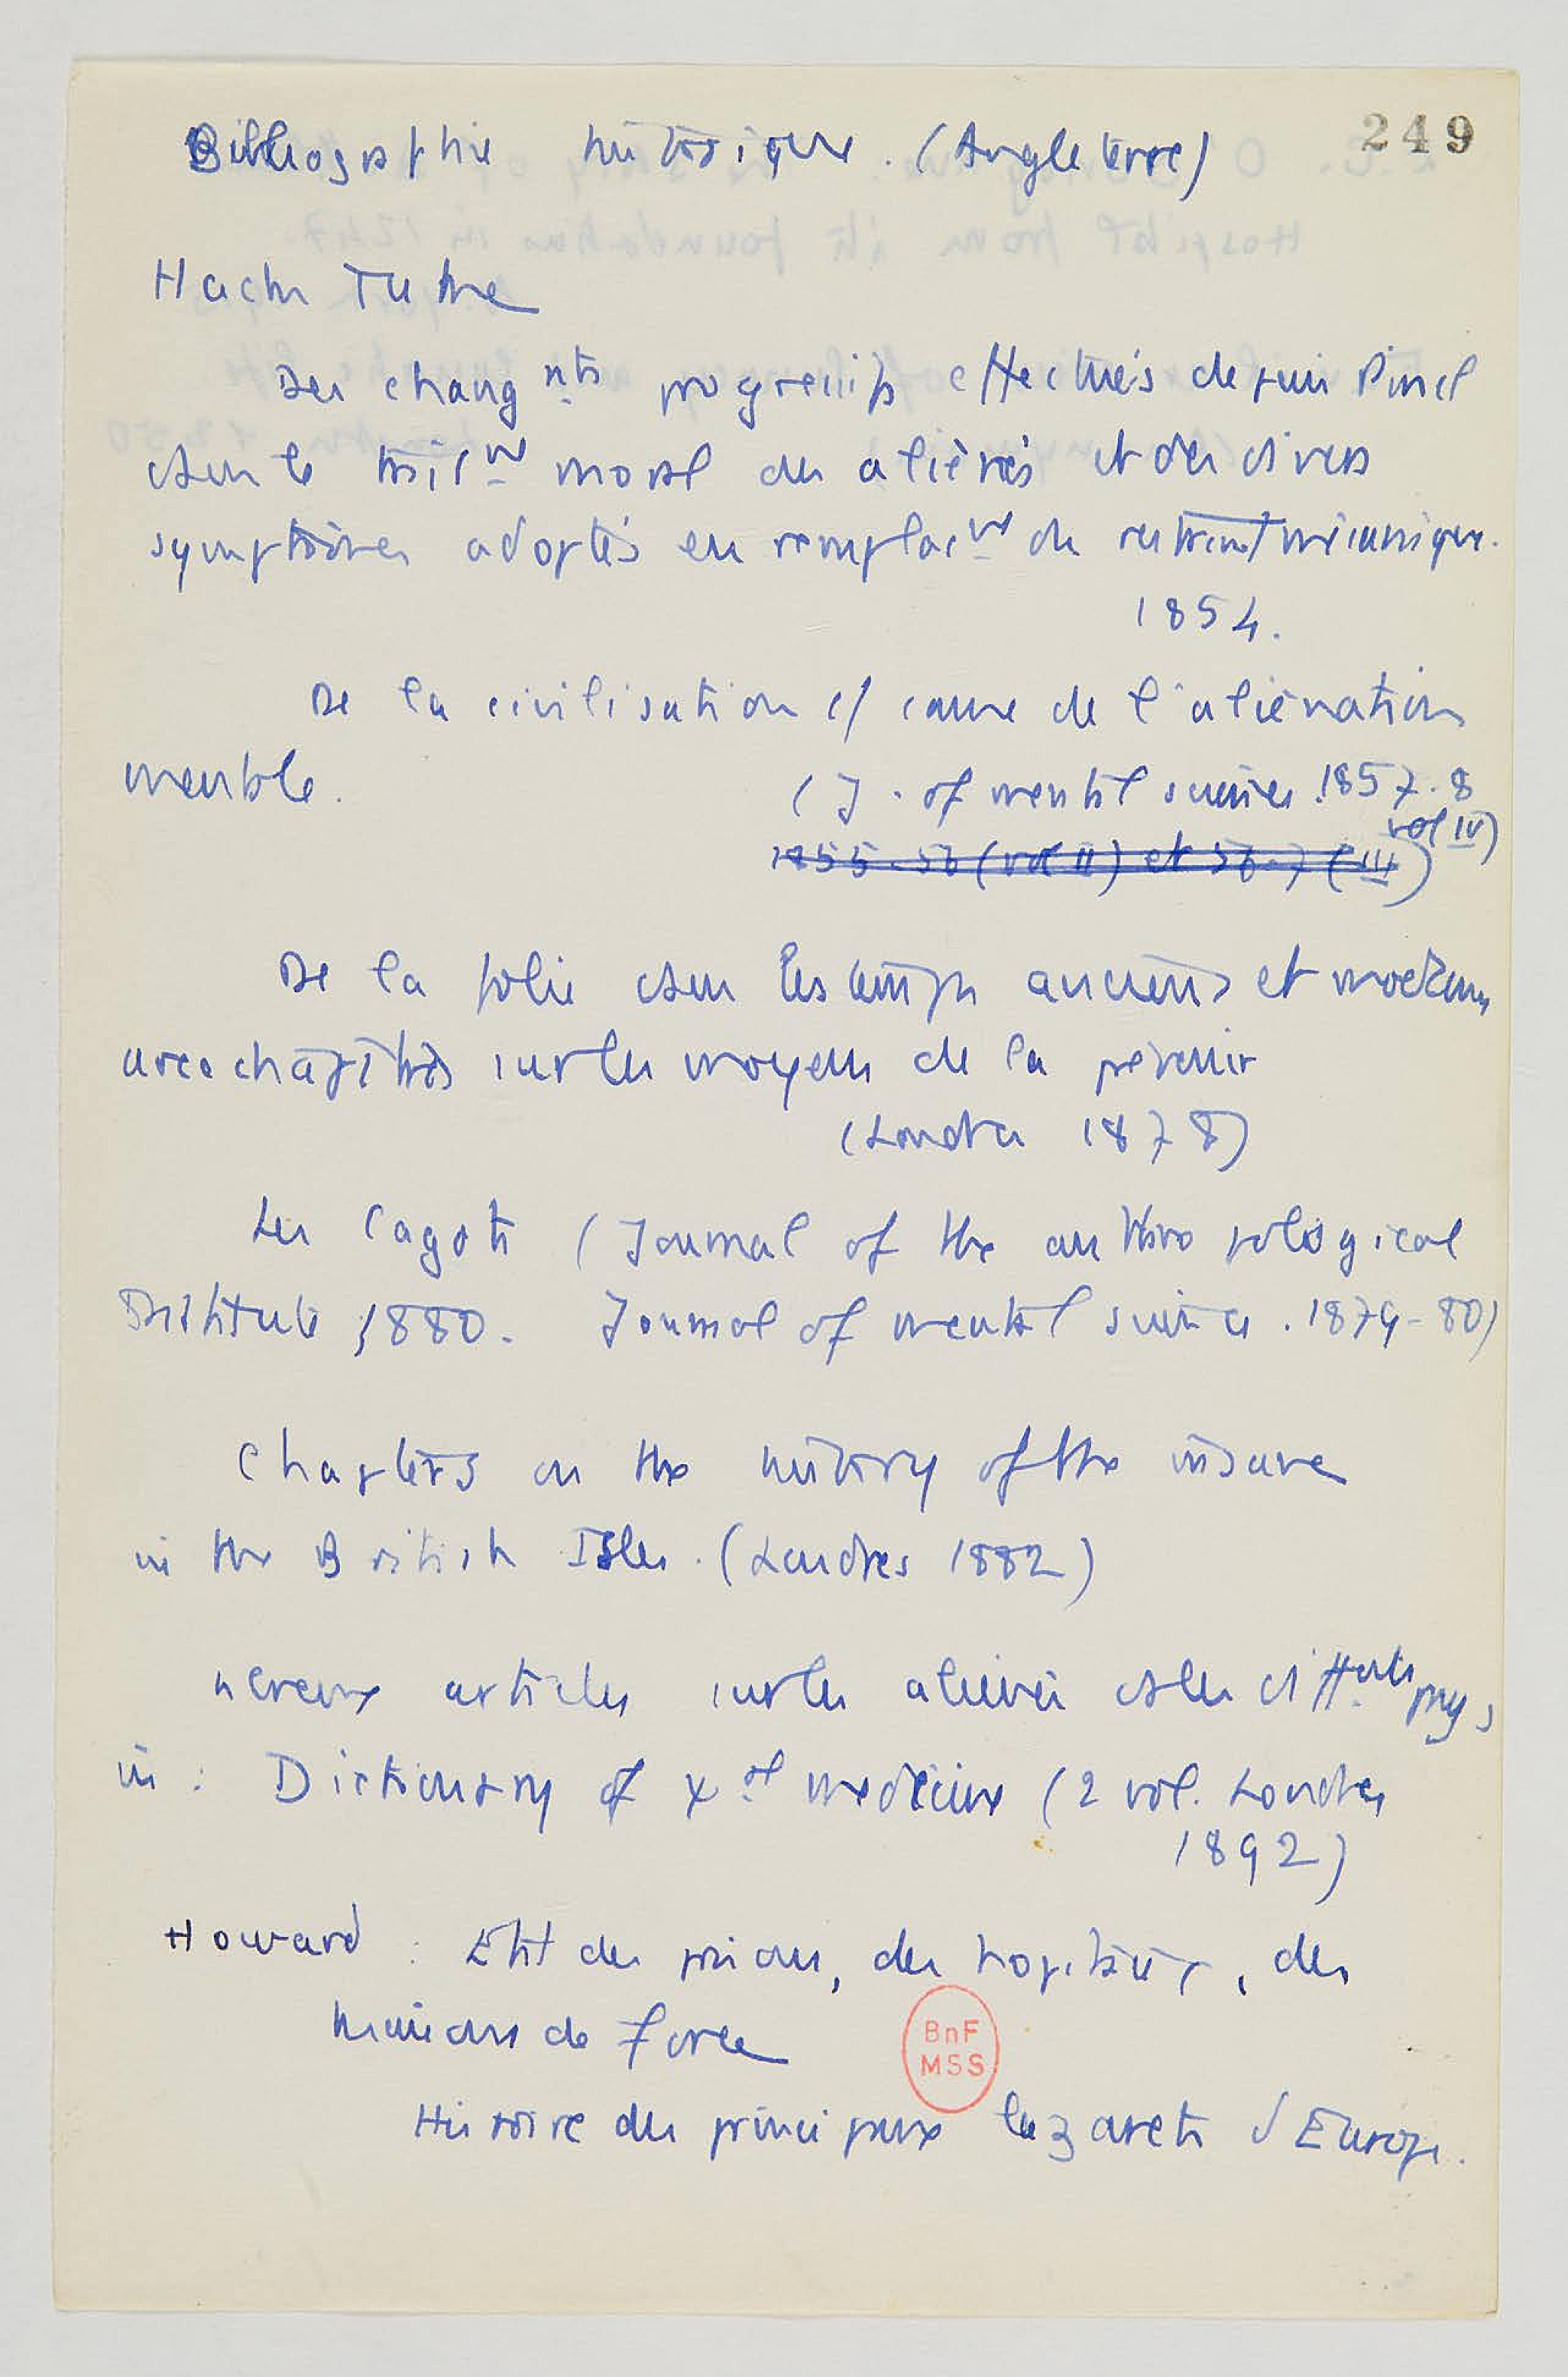 249
Bibliographie historique. (Angleterre)
Hach Tuke
Des changnts progressifs effectués depuis Pinel
dans le traitnt moral des aliénés et des divers
symptômes adoptés en remplacnt du restraint mécanique.
1854.
De la civilisation c/ cause de l'aliénation
mentale.
(J. of mental science. 1857.8
vol IV)
1855-56 (vol II) et 56-7 (III)
De la folie dans les temps anciens et modernes
avec chapitres sur les moyens de la prévenir
(Londres 1878)
Les Cagots (Journal of the anthropological
Institute 1880. Journal of mental science. 1879-80)
Chapters on the history of the insane
in the British Isles. (Londres 1882)
nbreux articles sur les aliénés ds les différents pays
in : Dictionary of ψal medicine (2 vol. Londres
1892)
Howard : Etat des prisons, des hopitaux, des
maisons de force
BnF
MSS
Histoire des principaux lazarets d'Europe.